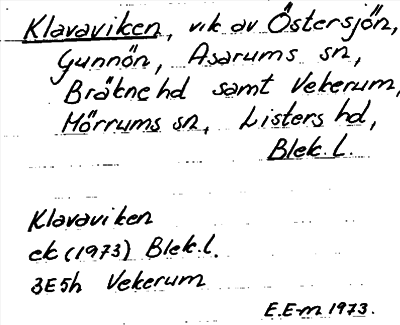 Klavaviken, vik av Östersjön,
Gunnön, Asarums sn,
Bräkne hd samt Vekerum,
Mörrums sn, Listers hd,
Blek. l.
Klavaviken
ek (1973) Blek.l.
3E5h Vekerum
E.E-m 1973.